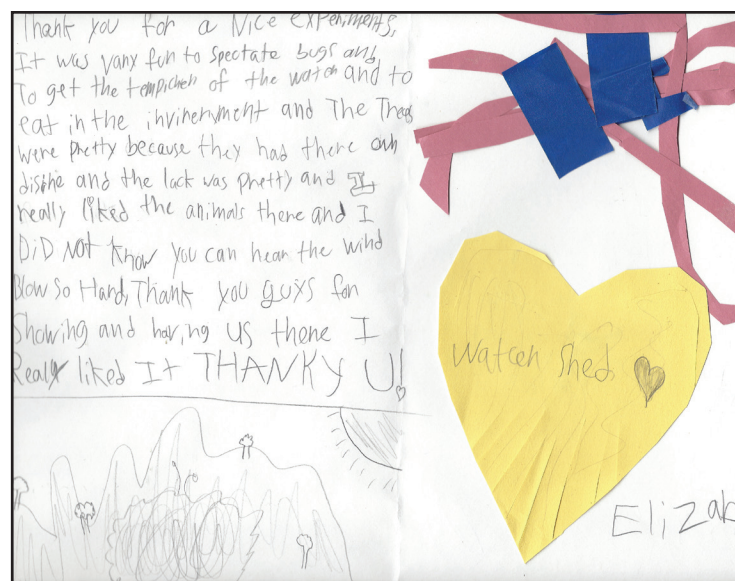 Thank you for a Nice experiments,
It was vary fun to spectate bugs and
To get the tempicheh of the watch and to
eat in the invinerment and The Thees
were pretty because they had there own
disihe and the lack was pretty and I
really liked the animals there and I
DiD Not know you can hear the wind
Blow So Hard, Thank you guys for
Showing and having us there I
Realy liked It THANKY U!
Watceh Shed
Elizab